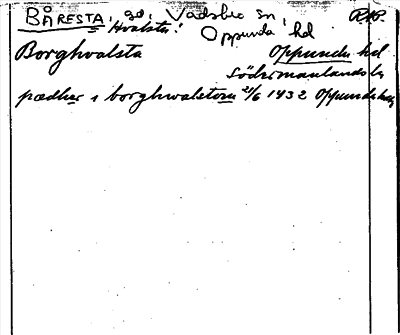 BÅRESTA, go, Vadsbro sn, RAP.
Hvalsta! Oppunda hd
Borghvalsta Oppunda hd
Södermanlands l.
pædher i borghwalstom 21/6 1432 Oppunda